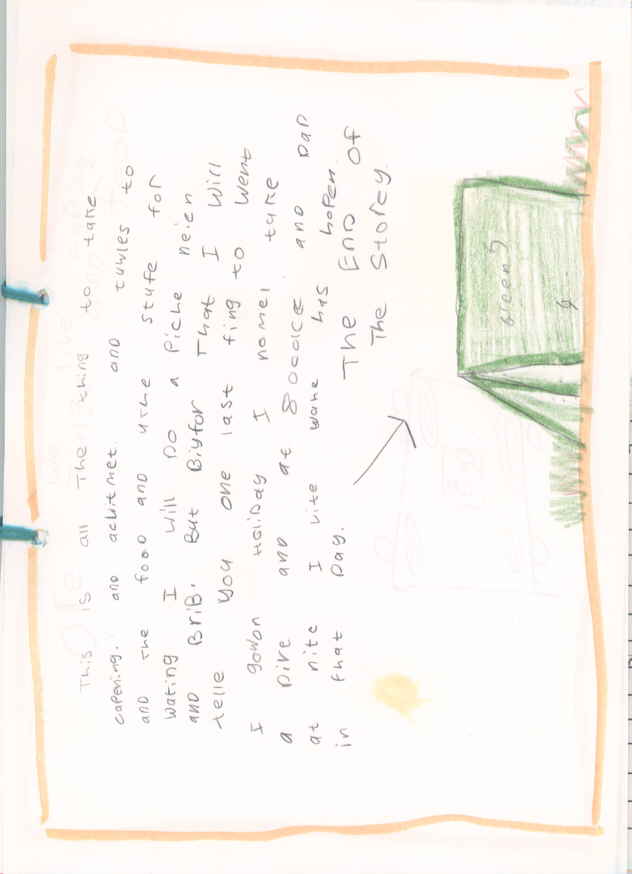 This is all The thing to take
capening. and acbitmet. and tuwles to
and the food and uthe stufe for
Wating I Will Do a Piche neien
and BriB. But Biyfor That I Will
telle You one last fing to Went
I gowon HoliDay I nomel take
a Dire and at 8 and DaD
at nite I rite wane has hopen
in fhat Day.
The EnD of
The Storey.